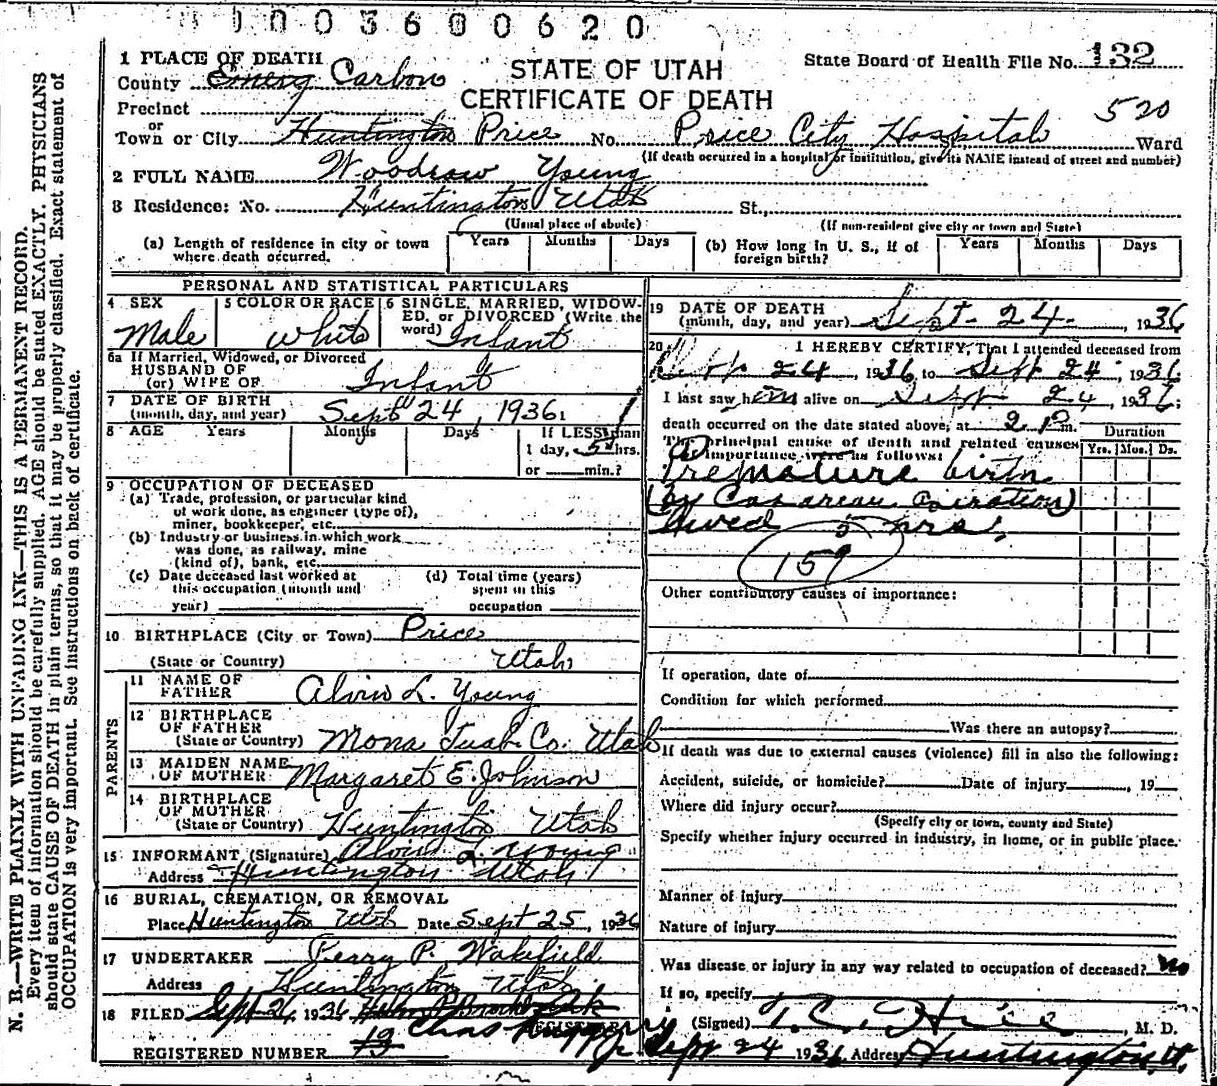 1003600620
1 PLACE OF DEATH
STATE OF UTAH
CERTIFICATE OF DEATH
State Board of Health File No. 132
County Emery Carbon
Precinct
520
or
Town or City Huntington Price No. Price City Hospital Ward
(If death occurred in a hospital or institution, give its NAME instead of street and number)
2 FULL NAME Woodrow Young
3 Residence: No. Huntington Utah St.,
(Usual place of abode) (If non-resident give city or town and State)
(a) Length of residence in city or town where death occurred. Years Months Days (b) How long in U. S., if of foreign birth? Years Months Days
PERSONAL AND STATISTICAL PARTICULARS
4 SEX Male
5 COLOR OR RACE White
6 SINGLE, MARRIED, WIDOW-
ED, or DIVORCED (Write the
word) Infant
6a If Married, Widowed, or Divorced
HUSBAND OF
(or) WIFE OF Infant
7 DATE OF BIRTH
(month, day, and year) Sept 24, 1936
8 AGE Years Months Days If LESS than
1 day, 5 hrs.
or min.?
9 OCCUPATION OF DECEASED
(a) Trade, profession, or particular kind
of work done, as engineer (type of),
miner, bookkeeper, etc.
(b) Industry or business in which work
was done, as railway, mine
(kind of), bank, etc.
(c) Date deceased last worked at
this occupation (month and
year)
(d) Total time (years)
spent in this
occupation
10 BIRTHPLACE (City or Town) Price
(State or Country) Utah
PARENTS
11 NAME OF
FATHER Alvin L. Young
12 BIRTHPLACE
OF FATHER
(State or Country) Mona Juab Co. Utah
13 MAIDEN NAME
OF MOTHER Margaret E. Johnson
14 BIRTHPLACE
OF MOTHER
(State or Country) Huntington Utah
15 INFORMANT (Signature) Alvin L. Young
Address Huntington Utah
16 BURIAL, CREMATION, OR REMOVAL
Place Huntington Utah Date Sept 25, 1936
17 UNDERTAKER Perry P. Wakefield
Address Huntington Utah
18 FILED Sept 26, 1936
REGISTRAR
REGISTERED NUMBER 13
19 DATE OF DEATH
(month, day, and year) Sept. 24, 1936
20 I HEREBY CERTIFY, That I attended deceased from
Sept 24, 1936 to Sept 24, 1936
I last saw him alive on Sept 24, 1936;
death occurred on the date stated above, at m.
The principal cause of death and related causes
of importance were as follows:
Duration
Yrs. Mos. Ds.
Premature birth
(by Casarean Operation)
lived 5 hrs.
159
Other contributory causes of importance:
If operation, date of
Condition for which performed
Was there an autopsy?
If death was due to external causes (violence) fill in also the following:
Accident, suicide, or homicide? Date of injury , 19
Where did injury occur?
(Specify city or town, county and State)
Specify whether injury occurred in industry, in home, or in public place.
Manner of injury
Nature of injury
Was disease or injury in any way related to occupation of deceased? No
If so, specify
(Signed) T. C. Hill, M. D.
Sept 24 1936 Address Huntington, U.
N. B.—WRITE PLAINLY WITH UNFADING INK—THIS IS A PERMANENT RECORD.
Every item of information should be carefully supplied. AGE should be stated EXACTLY. PHYSICIANS
should state CAUSE OF DEATH in plain terms, so that it may be properly classified. Exact statement of
OCCUPATION is very important. See instructions on back of certificate.